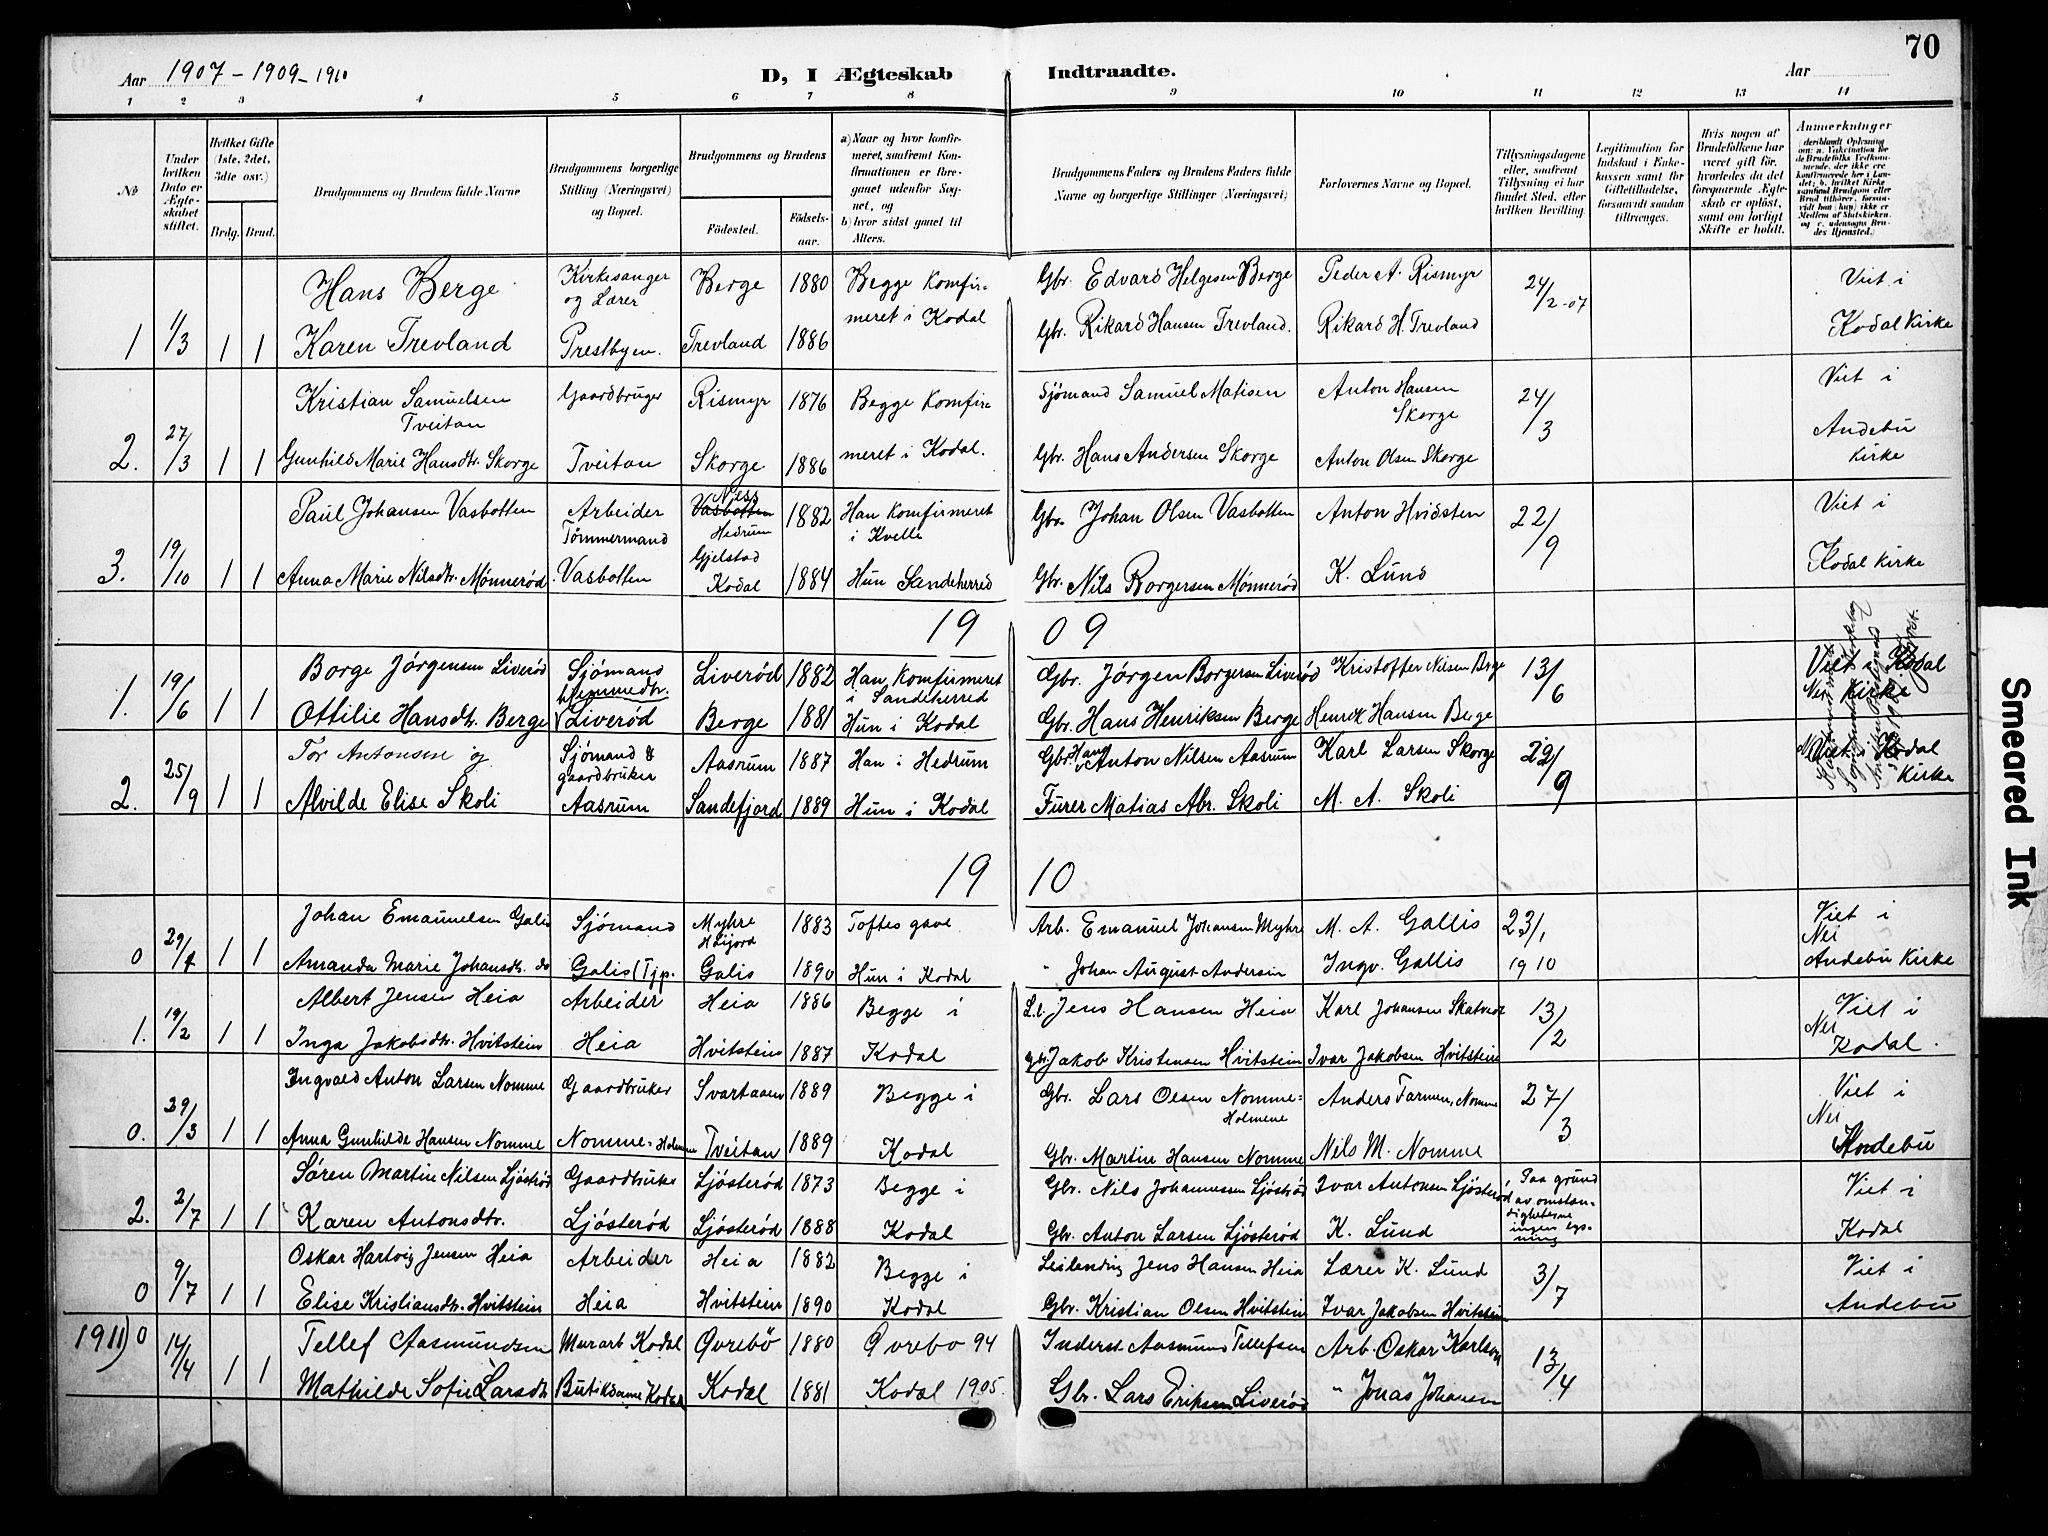 70
Aar 1907 - 1909 - 1910
D, I Ægteskab Indtraadte.
Aar
1 2 3 4 5 6 7 8 9 10 11 12 13 14
No
Under hvilken Dato er Ægteskabet stiftet.
Hvilket Gifte (1ste, 2det, 3die osv.)
Brdg. Brud.
Brudgommens og Brudens fulde Navne
Brudgommens borgerlige Stilling (Næringsvei) og Bopæl.
Brudgommens og Brudens
Födested. Födselsaar.
a) Naar og hvor konfirmeret, saafremt Konfirmationen er foregaaet udenfor Sognet, og
b) hvor sidst gaaet til Alters.
Brudgommens Faders og Brudens Faders fulde Navne og borgerlige Stillinger (Næringsvei)
Forlovernes Navne og Bopæl.
Tillysningsdagene eller, saafremt Tillysning ei har fundet Sted, efter hvilken Bevilling.
Legitimation for Indskud i Enkekassen samt for Giftetilladelse, forsaavidt saadan tiltrænges.
Hvis nogen af Brudefolkene har været gift før, hvorledes da det foregaaende Ægteskab er opløst, samt om lovligt Skifte er holdt.
Anmerkninger
(deriblandt Oplysning om: a. Vakcination for de Brudefolks Vedkommende, der ikke ere konfirmerede her i Landet; b. hvilket Kirkesamfund Brudgom eller Brud tilhører, forsaavidt han (hun) ikke er Medlem af Statskirken, og c. udensogns Brudes Hjemsted.)
Hans Berge Kirkesanger og Lærer Berge 1880 Begge Komfirmeret i Kodal Gbr. Edvard Helgesen Berge Peder A. Rismyr 24/2-07 Viet i
1 1/3 1 1 Karen Trevland Prestbyen. Trevland 1886 Gbr. Rikard Hansen Trevland. Rikard H. Trevland Kodal Kirke
Kristian Samuelsen Tveitan Gaardbruger Rismyr 1876 Begge Komfir Sjømand Samuel Matisen Anton Hansen Skorge 24/3 Viet i
2. 27/3 1 1 Gunhild Marie Hansdtr. Skorge Tveitan Skorge 1886 meret i Kodal. Gbr. Hans Andersen Skorge Anton Olsen Skorge Andebu Kirke
Paul Johansen Vasbotten Arbeider Tømmermand Vasbotten Hedrum 1882 Han Komfirmeret i Kvelle Gbr. Johan Olsen Vasbotten Anton Hvidsten 22/9 Viet i
3. 19/10 1 1 Anna Marie Nilsdtr. Mønnerød. Vasbotten Gjelstad Kodal 1884 Hun Sandeherred Gbr. Nils Borgersen Mønnerød K. Lund Kodal Kirke
19 09
Borge Jörgensen Liverød Sjömand Liverød 1882 Han Komfirmeret i Sandeherred Gbr. Jörgen Borgersen Liverød Kristoffer Nilsen Berge 13/6 Viet i Kodal
1. 19/6 1 1 Ottilie Hansdtr. Berge Liverød Berge 1881 Hun i Kodal Gbr. Hans Henriksen Berge Henrik Hansen Berge Nei Kirke
Tor Antonsen og Sjömand & gaardbruker Aasrum 1887 Han i Hedrum Gbr. Hans Anton Nilsen Aasrum Karl Larsen Skorge 22/9 Viet i Kodal Kirke
2. 25/9 1 1 Alvilde Elise Skoli Aasrum Sandefjord 1889 Hun i Kodal Furer Matias Abr. Skoli M. A. Skoli
19 10
Johan Emanuelsen Galis Sjömand Myhre 1883 Toftes gave Arb. Emanuel Johansen Myhre M. A. Gallis 23/1 Viet i Nei
0 1 1 Amanda Marie Johansdtr. do Galis (Tjp. Galis 1890 Hun i Kodal " Johan August Andersen Ingv. Gallis 1910 Andebu Kirke
Albert Jensen Heia Arbeider Heia 1886 Begge i L.l. Jens Hansen Heia Karl Johansen 13/2 Viet i
1. 19/2 1 1 Inga Jakobsdtr. Hvitstein Heia Hvitstein 1887 Kodal Gbr. Jakob Kristensen Hvitstein Ivar Jakobsen Hvitstein Nei Kodal.
Ingvald Anton Larsen Nomme Gaardbruker Svartaaen 1889 Begge i Gbr. Lars Olsen Nomme=Holmene Anders Farmen, Nomme 27/3 Viet i Nei
0. 29/3 1 1 Anna Gunhilde Hansen Nomme Nomme=Holmene Tveitan 1889 Kodal Gbr. Martin Hansen Nomme Nils M. Nomme Andebu
Søren Martin Nilsen Ljösterød Gaardbruker Ljösterød 1873 Begge i Gbr. Nils Johannessen Ljösterød Ivar Antonsen Ljösterød Paa grund av omstændigheterne ingen lysning Viet i
2. 2/7 1 1 Karen Antonsdtr. Ljösterød Ljösterød 1888 Kodal Gbr. Anton Larsen Ljösterød K. Lund Kodal
Oskar Hartvig Jensen Heia Arbeider Heia 1882 Begge i Leilending Jens Hansen Heia Lærer K. Lund 3/7 Viet i
0 9/7 1 1 Elise Kristiansdtr. Hvitstein Heia Hvitstein 1890 Kodal Gbr. Kristian Olsen Hvitstein Ivar Jakobsen Hvitstein Andebu
1911) 0 14/4 Tellef Aasmundsen Murarb Kodal Øvrebö 1880 Øvrebo 94 Inderst Aasmund Tellefsen Arb. Oskar Karlsen 13/4
1 1 Mathilde Sofie Larsdtr Butikdame Kodal Kodal 1881 Kodal 1905. Gbr. Lars Eriksen Liverød " Jonas Johansen
Smeared Ink